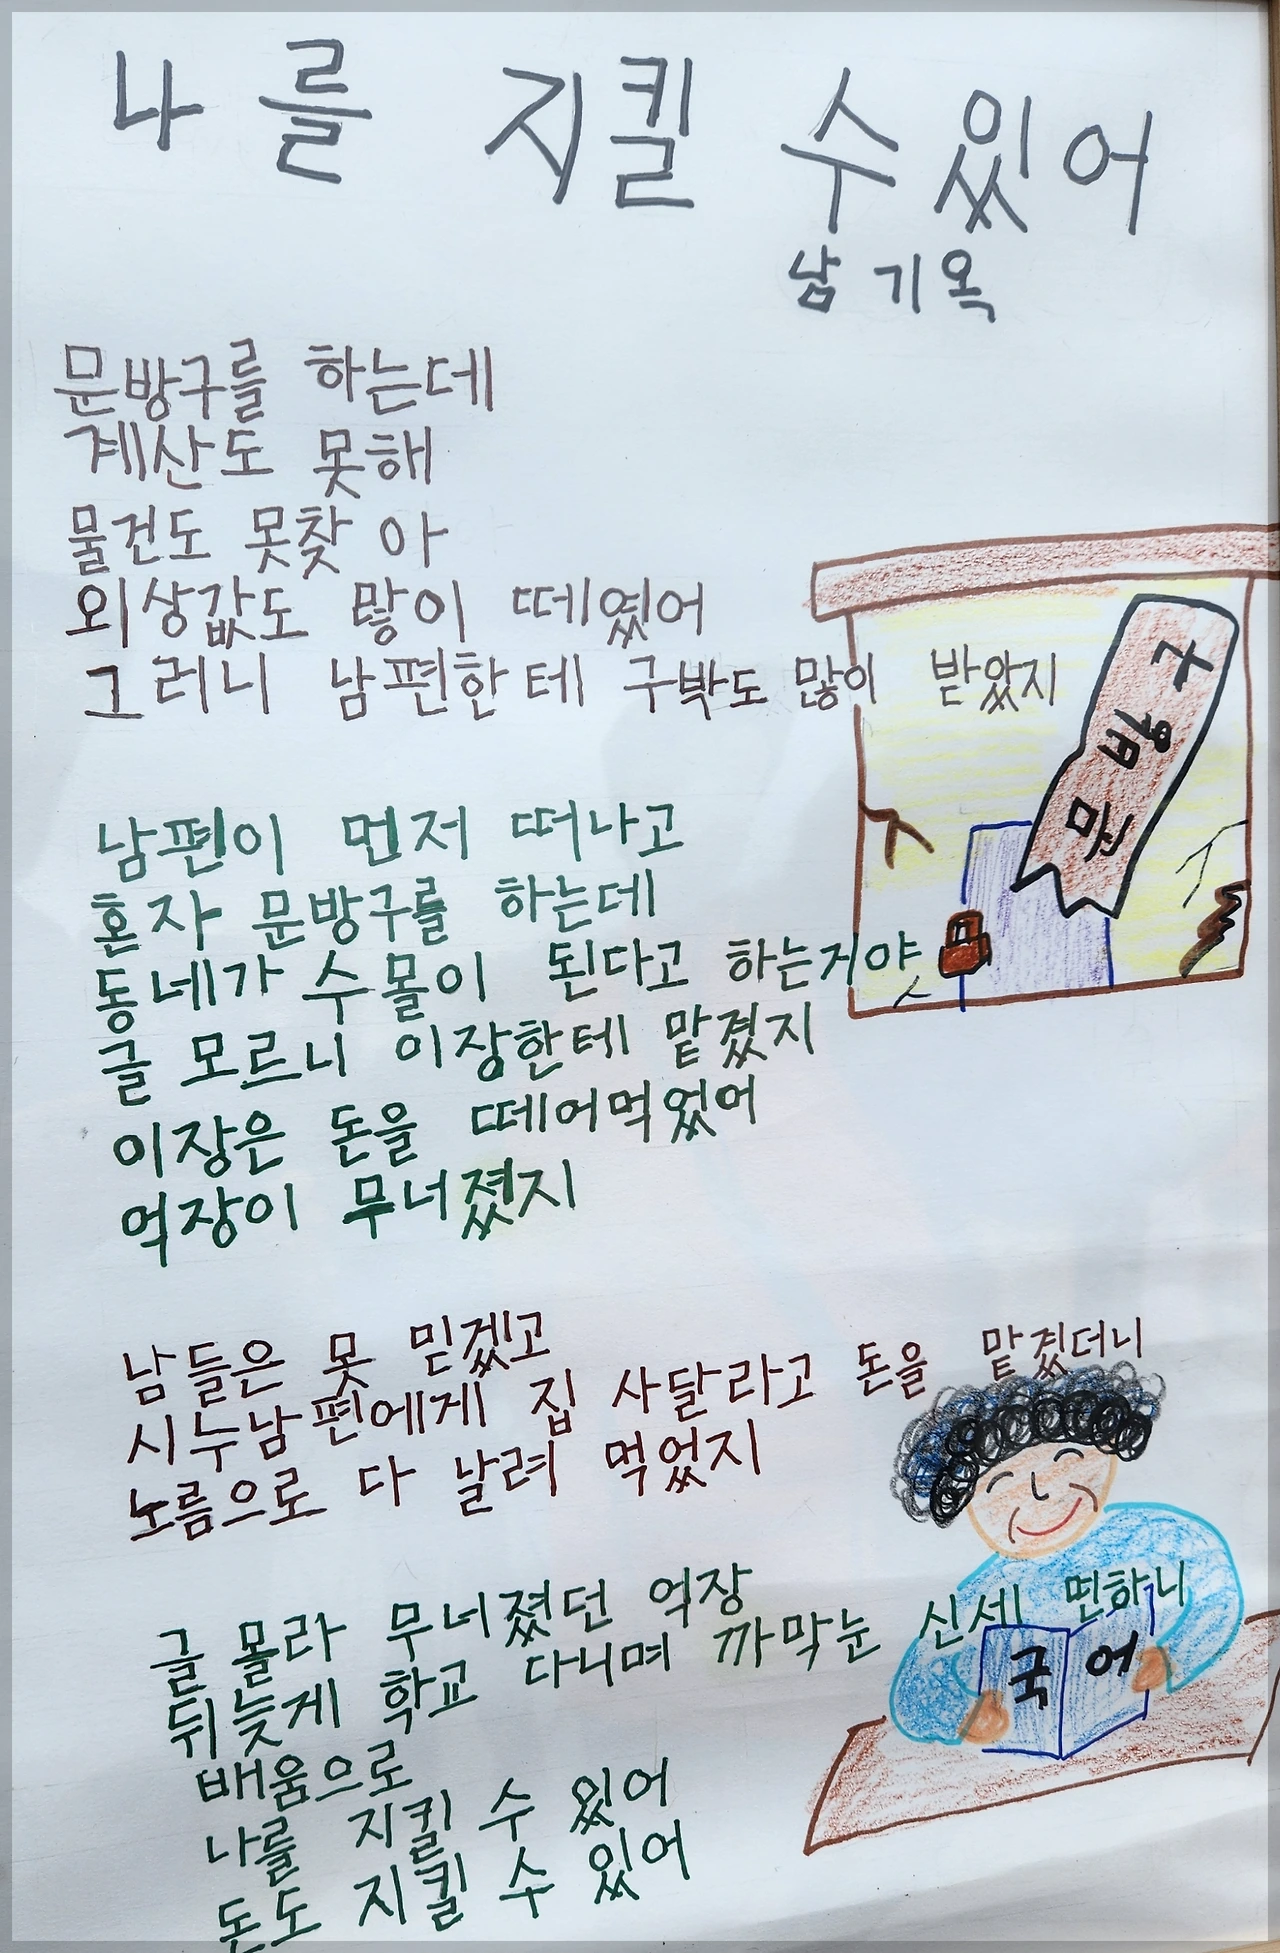 나를 지킬 수 있어
남기옥
문방구를 하는데
계산도 못해
물건도 못찾아
외상값도 많이 떼였어
그러니 남편한테 구박도 많이 받았지
남편이 먼저 떠나고
혼자 문방구를 하는데
동네가 수몰이 된다고 하는거야
글 모르니 이장한테 맡겼지
이장은 돈을 떼어먹었어
억장이 무너졌지
남들은 못 믿겠고
시누남편에게 집 사달라고 돈을 맡겼더니
노름으로 다 날려 먹었지
글 몰라 무너졌던 억장
뒤늦게 학교 다니며 까막눈 신세 면하니
배움으로
나를 지킬 수 있어
돈도 지킬 수 있어
문방구
국어